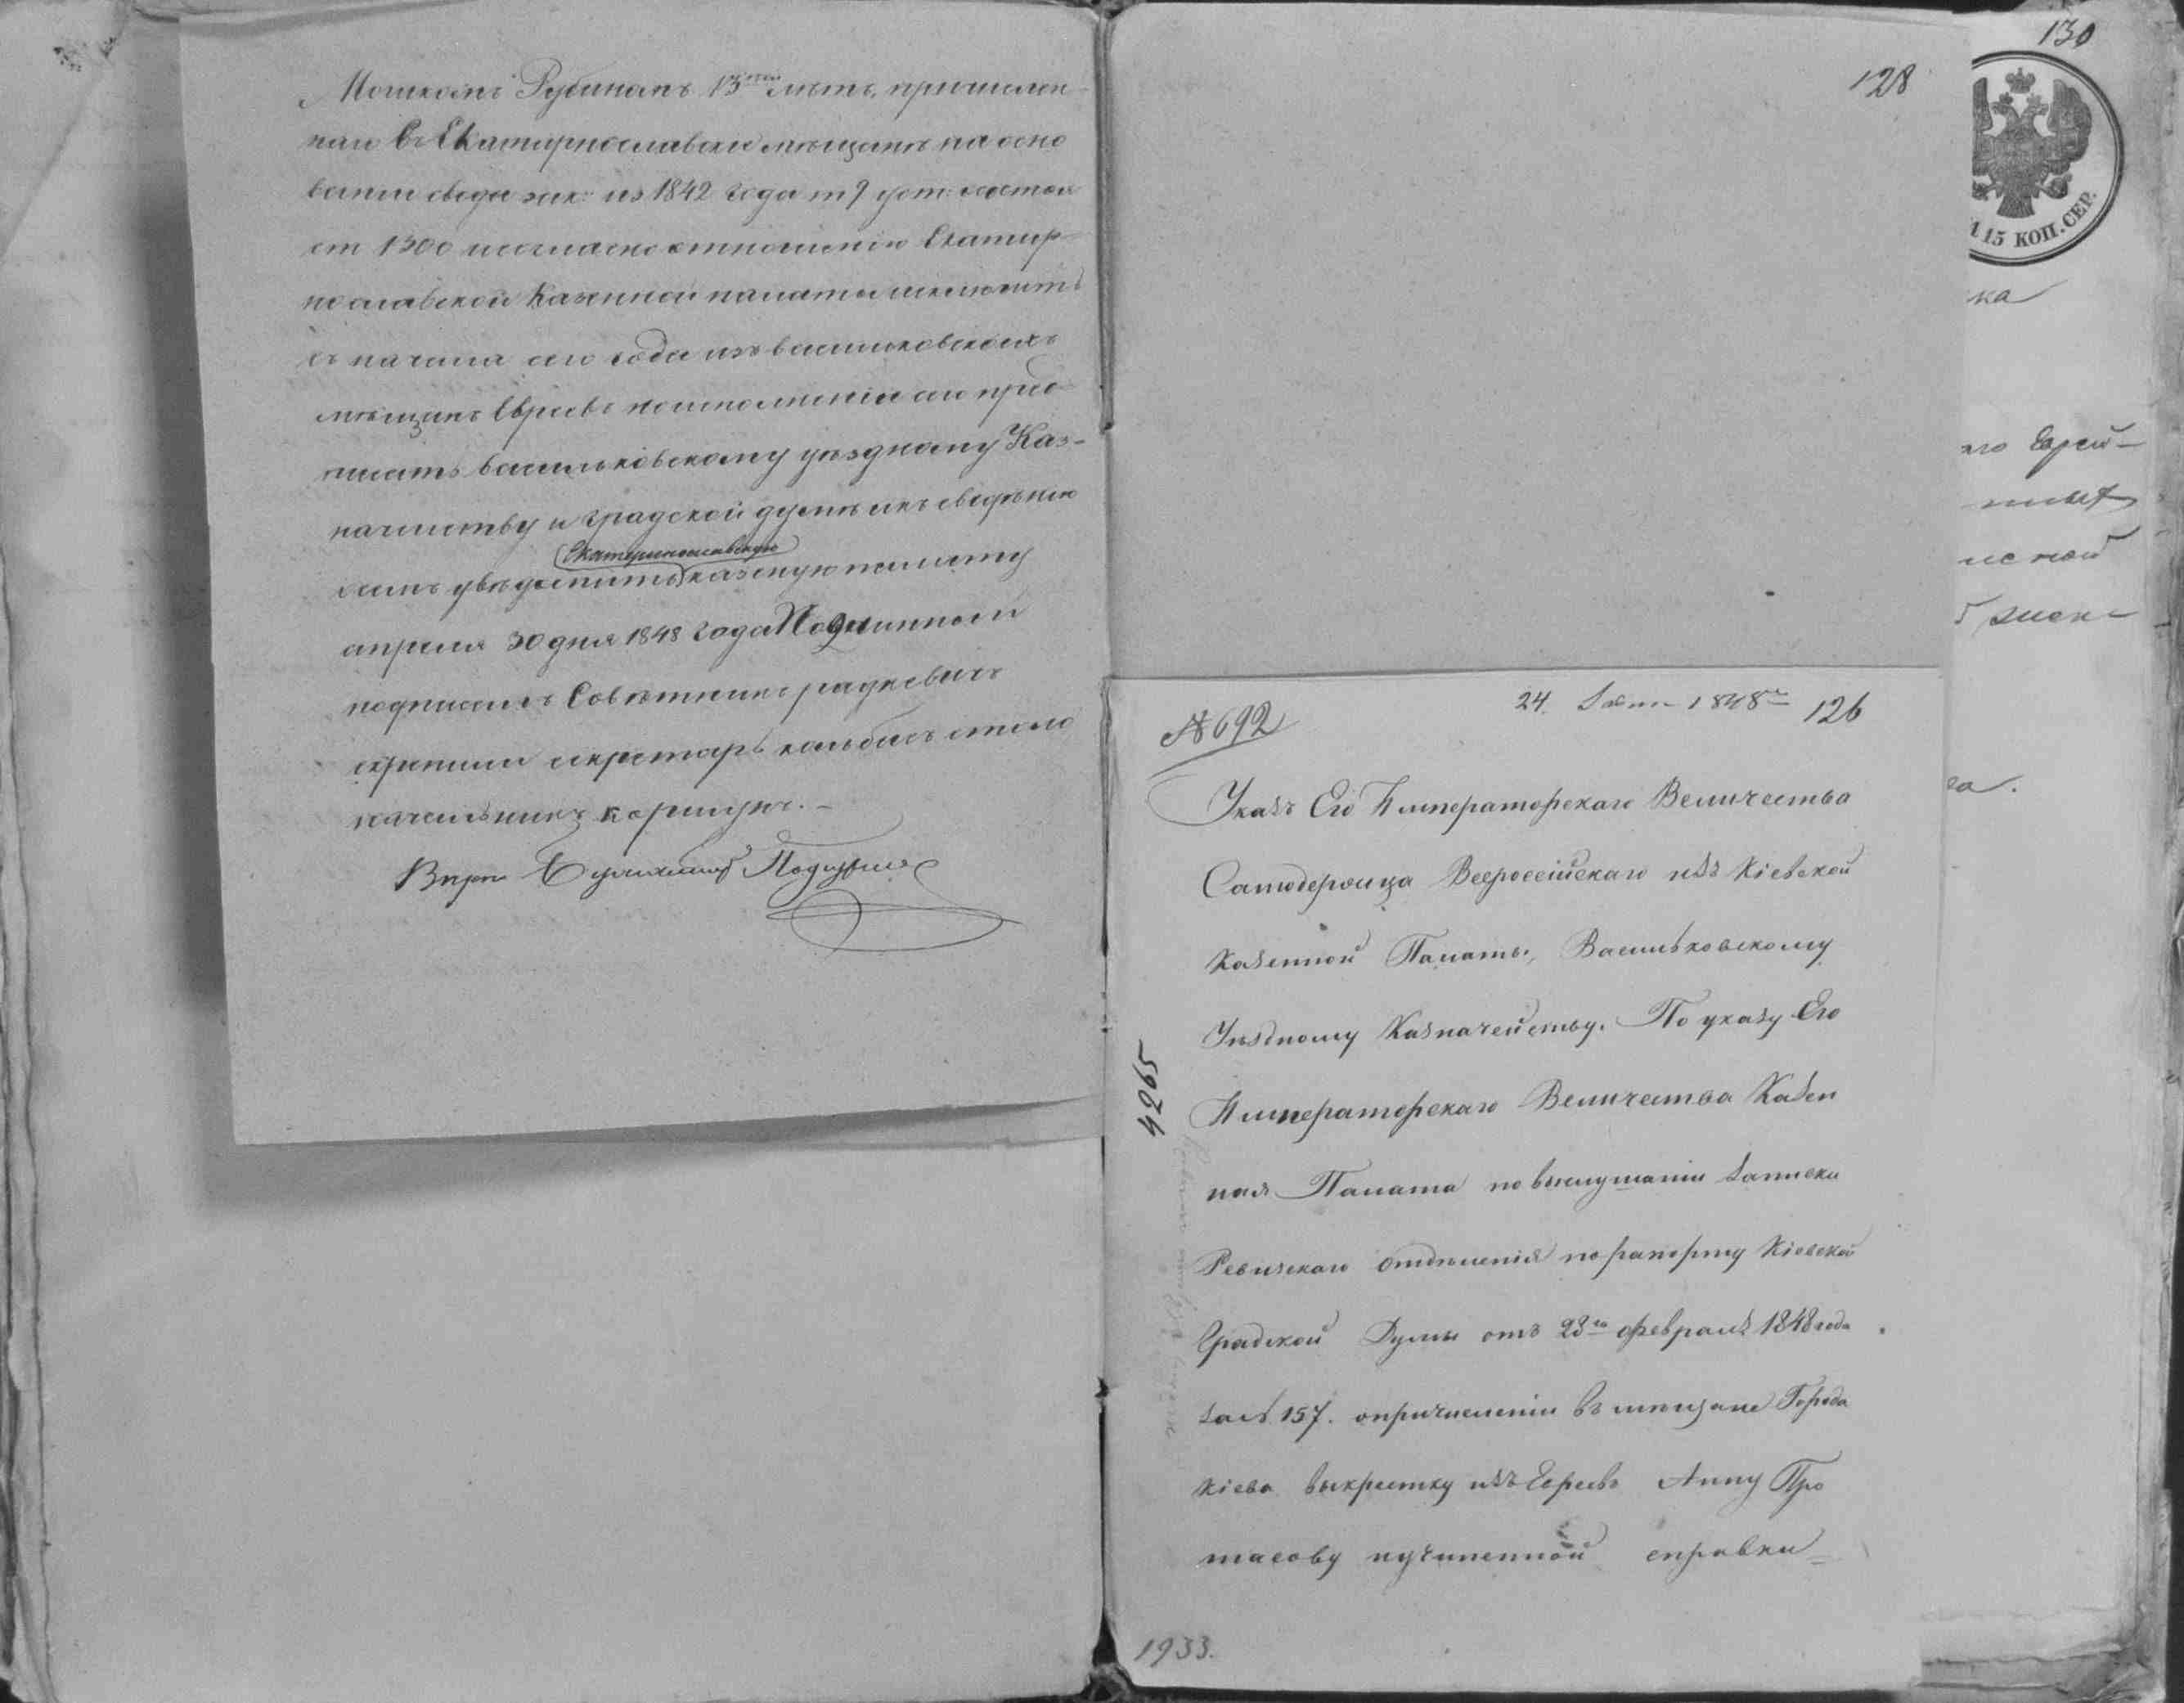 Мошкомъ Рубинамъ 13 лѣтъ, причислен
наго въ Екатеринославскіе мѣщане на осно
ваніи свода зак: из 1842 года т 9 уст: состоя
ст 1300 и согласно отношенію Екатир
нославской Казенной палаты исключить
съ начала сего года изъ васильковскихъ
мѣщанъ Евреевъ по исполненіи сего пред
писать васильковскому уѣздному Каз-
начейству и градской думѣ и къ свѣдѣнію
Екатеринославскую
увѣдомить казеную палату
апреля 30 дня 1848 года Подлинный
подписалъ Совѣтникъ радкевичъ
скрепили секретарь столо
начальникъ коршунъ. –
128
130
115 КОП. СЕР.
ка
го Еврей-
ной
№ 692
24. 1848 126
Указъ Его Императорскаго Величества
Самодержца Всероссійскаго изъ Кіевской
Казенной Палаты, Васильковскому
Уѣздному Казначейству. По указу Его
Императорскаго Величества Казен
ная Палата по выслушаніи записки
Ревизскаго отдѣленія по рапорту Кіевской
Градской Думы отъ 23го февраля 1848 года
за № 157. о причисленіи въ мѣщане Города
Кіева выкрестку изъ Евреевъ Анну Про
тасову и учиненной справки
4265
1933.